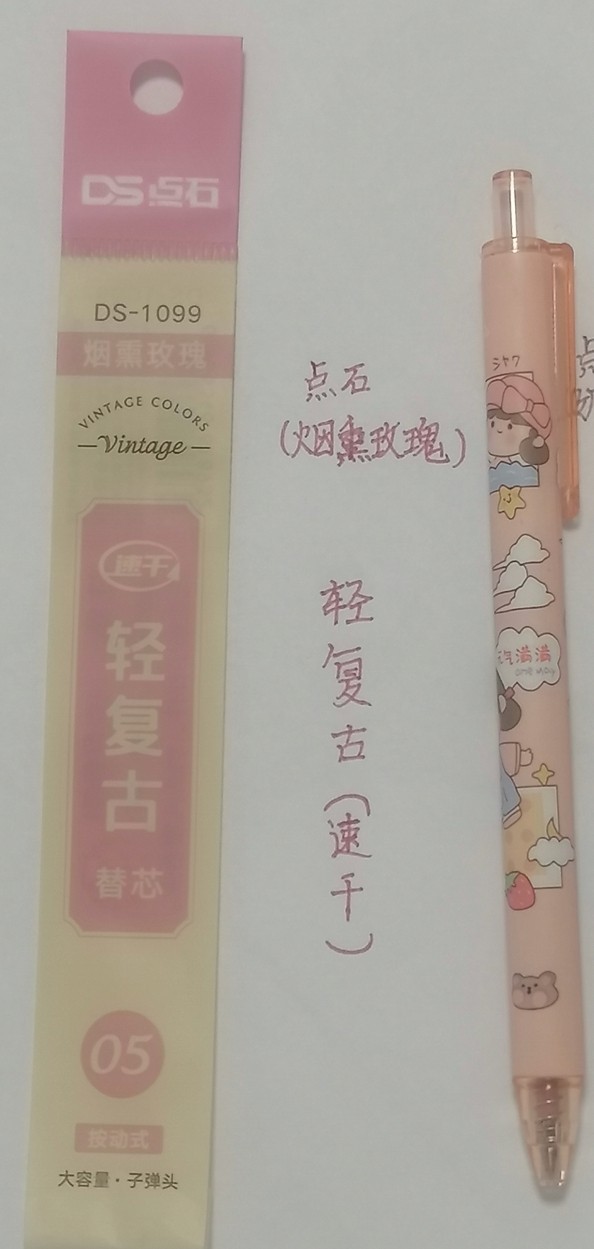 DS 点石
DS-1099
烟熏玫瑰
VINTAGE COLORS
Vintage
速干
轻复古
替芯
05
按动式
大容量·子弹头
点石
(烟熏玫瑰)
轻复古(速干)
元气满满